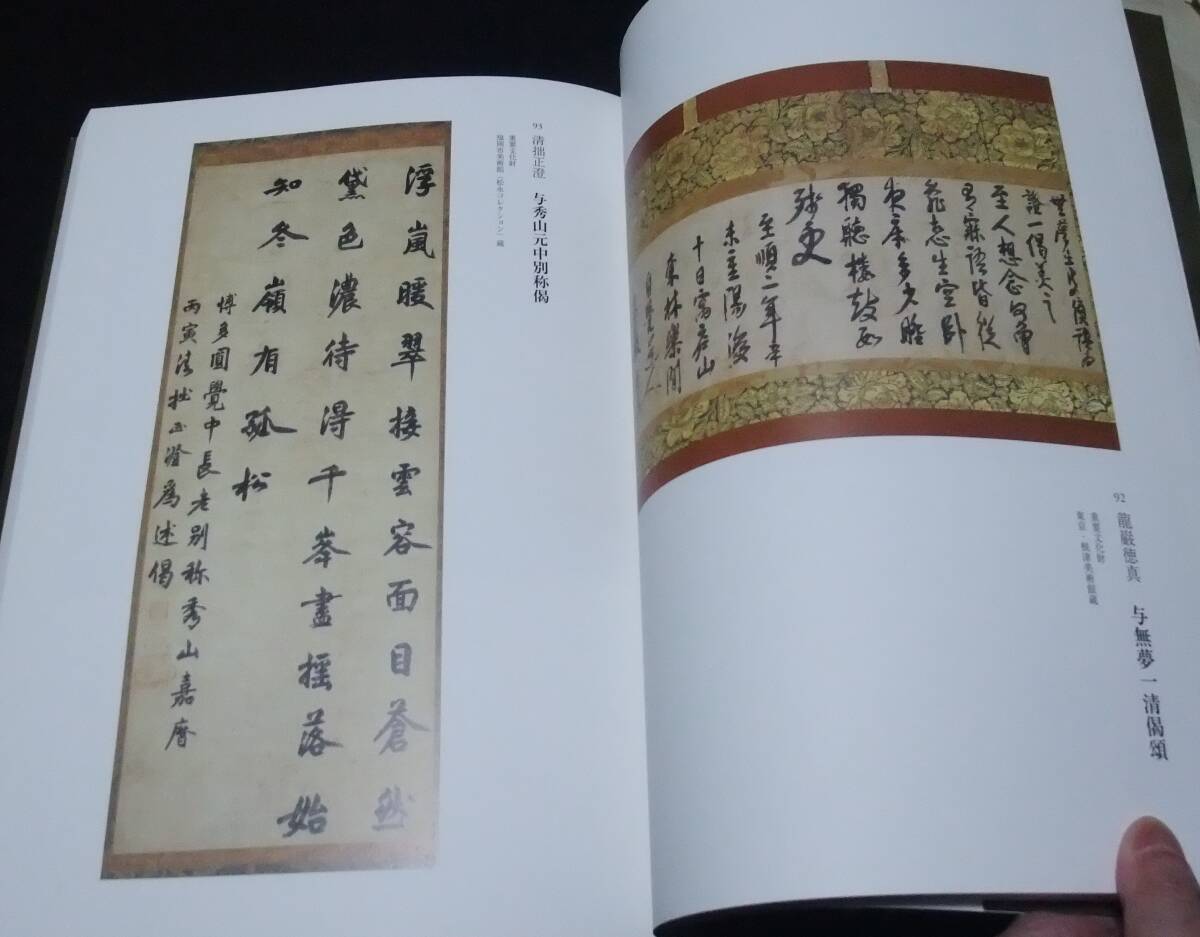 92 龍巖徳真　与無夢一清偈頌
重要文化財
東京・根津美術館蔵
證一偈美之
至人想念自
寤語皆從
生空臥
夜寒多少
獨聽樓鼓
殘更
至順二年辛
未重陽後
十日寓廬山
東林樂閒
93 清拙正澄　与秀山元中別称偈
重要文化財
福岡市美術館（松永コレクション）蔵
浮嵐暖翠接雲容面目蒼然
黛色濃待得千峯盡揺落始
知冬嶺有孤松
博多圓覺中長老別称秀山嘉暦
丙寅清拙正澄為述偈